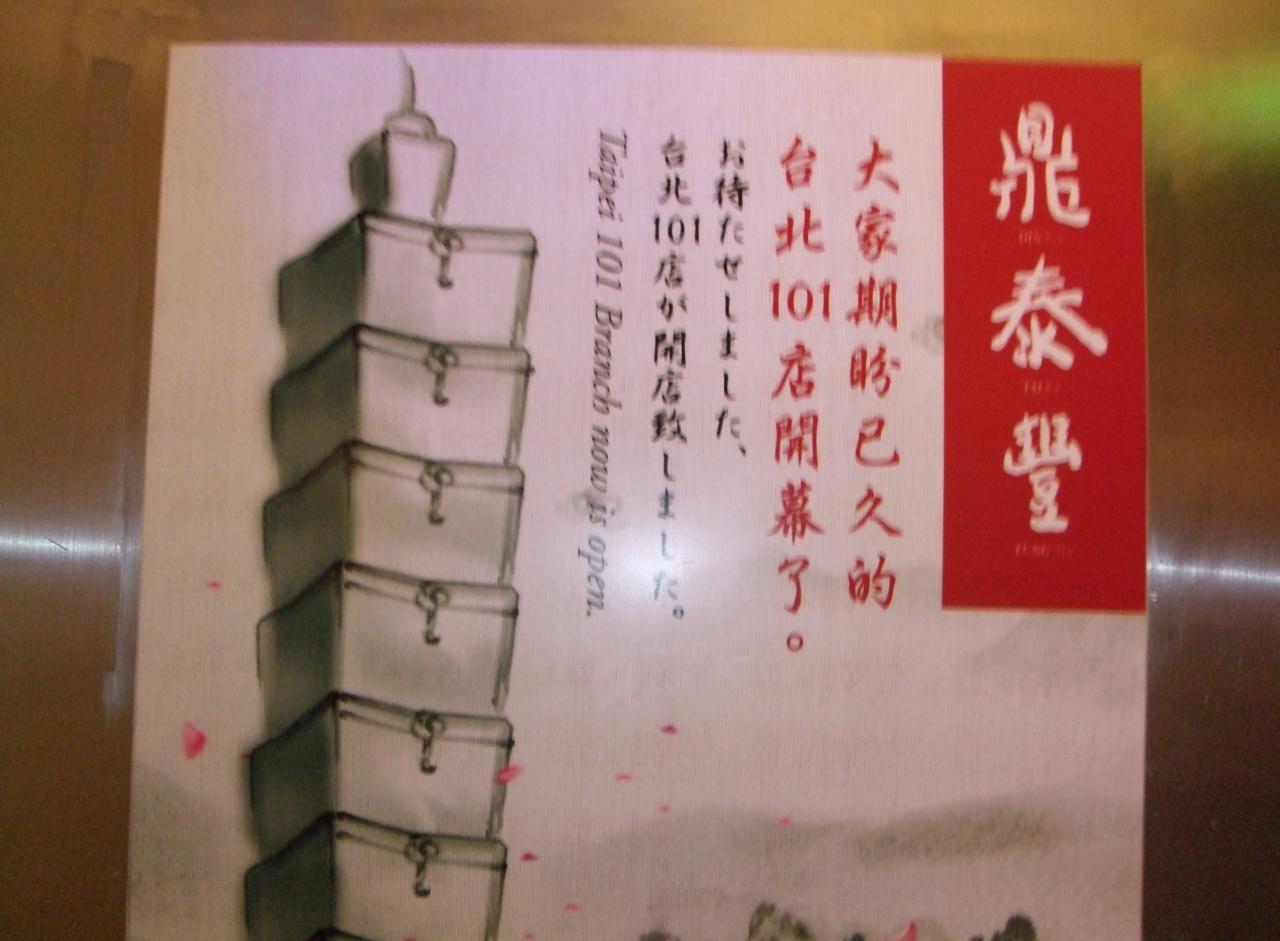 鼎泰豐
大家期盼已久的
台北101店開幕了。
お待たせしました、
台北101店が開店致しました。
Taipei 101 Branch now is open.